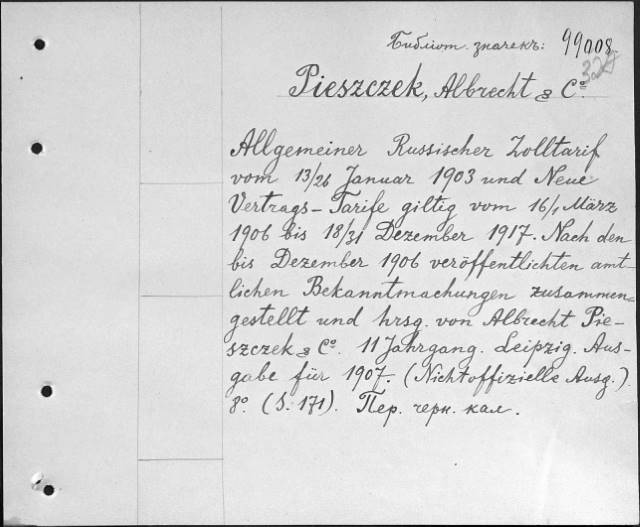 Библиот. значекъ: 99008
Pieszczek, Albrecht & Cº.
Allgemeiner Russischer Zolltarif
vom 13/26 Januar 1903 und Neue
Vertrags-Tarife giltig vom 16/1 März
1906 bis 18/31 Dezember 1917. Nach den
bis Dezember 1906 veröffentlichten amt-
lichen Bekanntmachungen zusammen-
gestellt und hrsg. von Albrecht Pie-
szczek & Cº. 11 Jahrgang. Leipzig. Aus-
gabe für 1907. (Nichtoffizielle Ausg.)
8º. (S. 171). Пер. черн. кал.